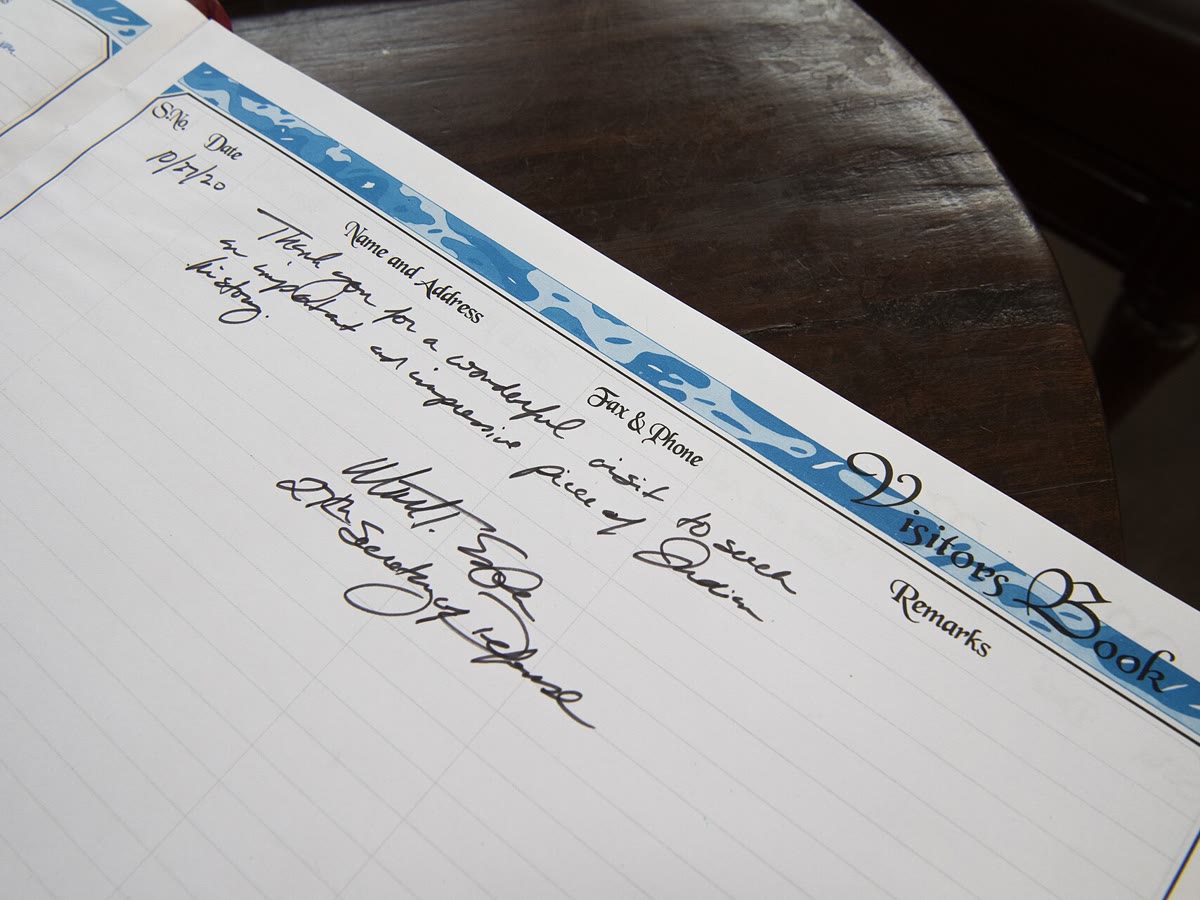 Visitors Book
S.No. Date Name and Address Fax & Phone Remarks
10/27/20
Thank you for a wonderful visit to such
an important and impressive piece of Indian
history.
27th Secretary of Defense